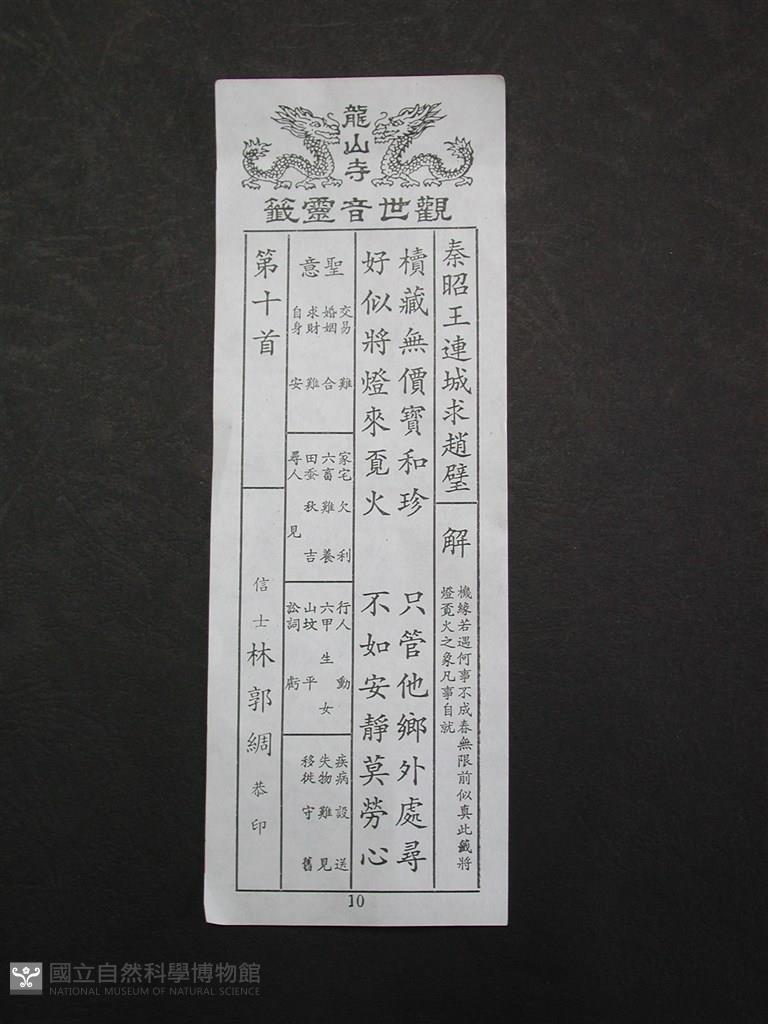 龍山寺
觀世音靈籤
秦昭王連城求趙璧
解
機緣若遇何事不成春無限前似真此籤將
燈覓火之象凡事自就
櫝藏無價寳和珍 只管他鄉外處尋
好似將燈來覓火 不如安靜莫勞心
聖意
交易 難
婚姻 合
求財 難
自身 安
家宅 欠利
六畜 難養
田蚕 秋吉
尋人 見
行人 動
六甲 生女
山坟 平
訟詞 虧
疾病 設送
失物 難見
移徙 守舊
第十首
信士 林郭綢 恭印
10
國立自然科學博物館
NATIONAL MUSEUM OF NATURAL SCIENCE